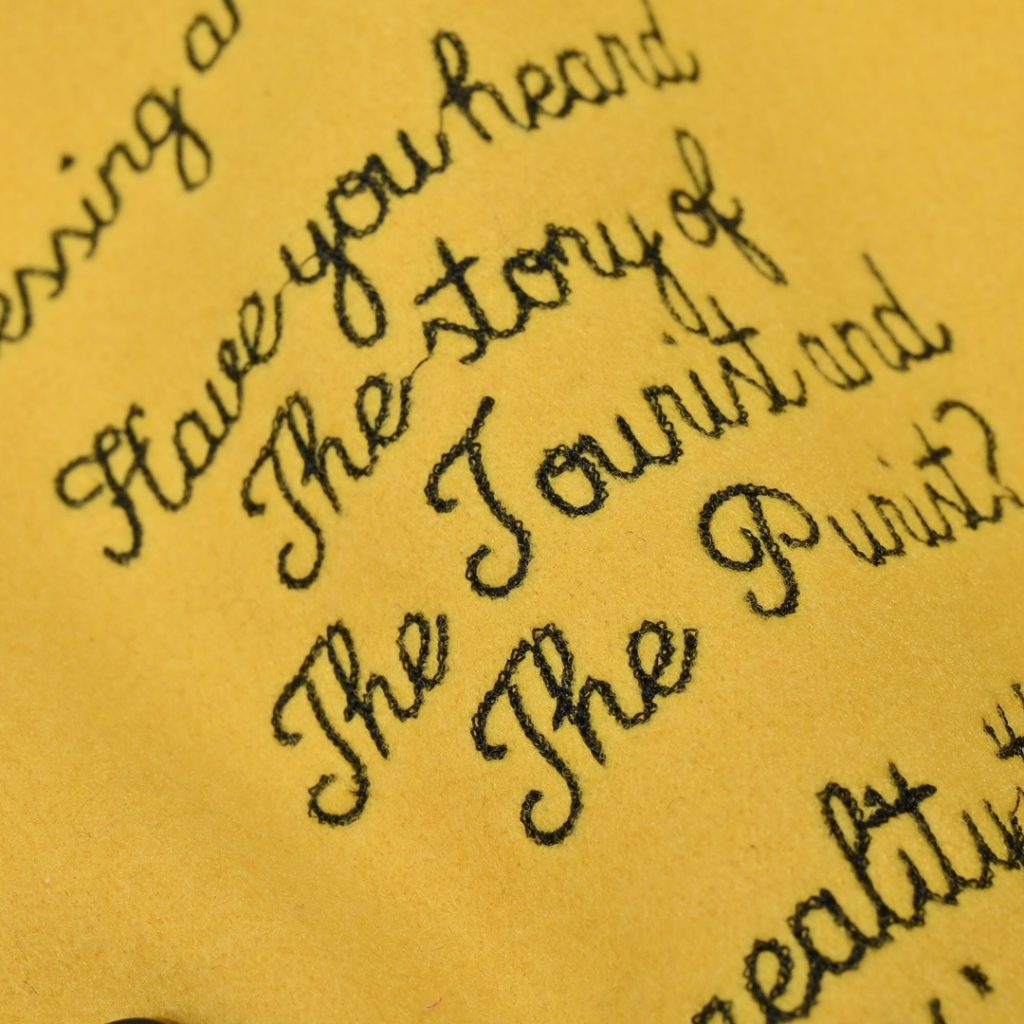 essing a
Have you heard
The story of
The Tourist and
The Purist?
eality